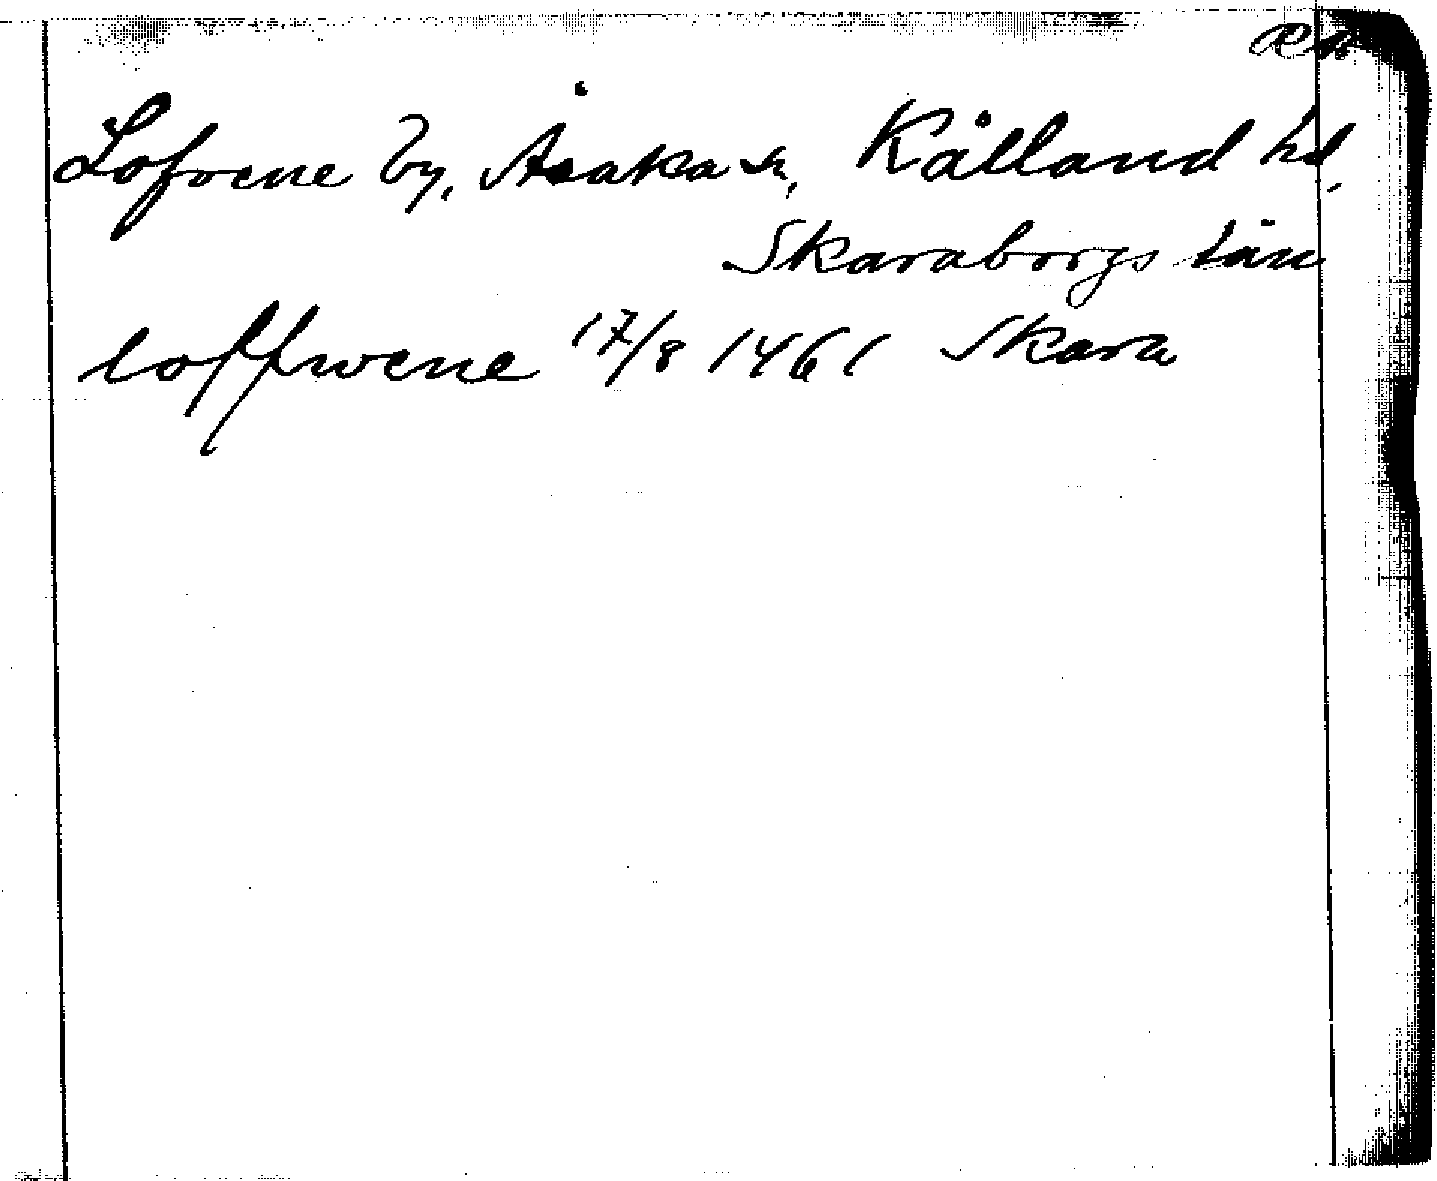 Lofvene by, Åsaka sn, Kålland hd,
Skaraborgs län
loffwene 17/8 1461 Skara